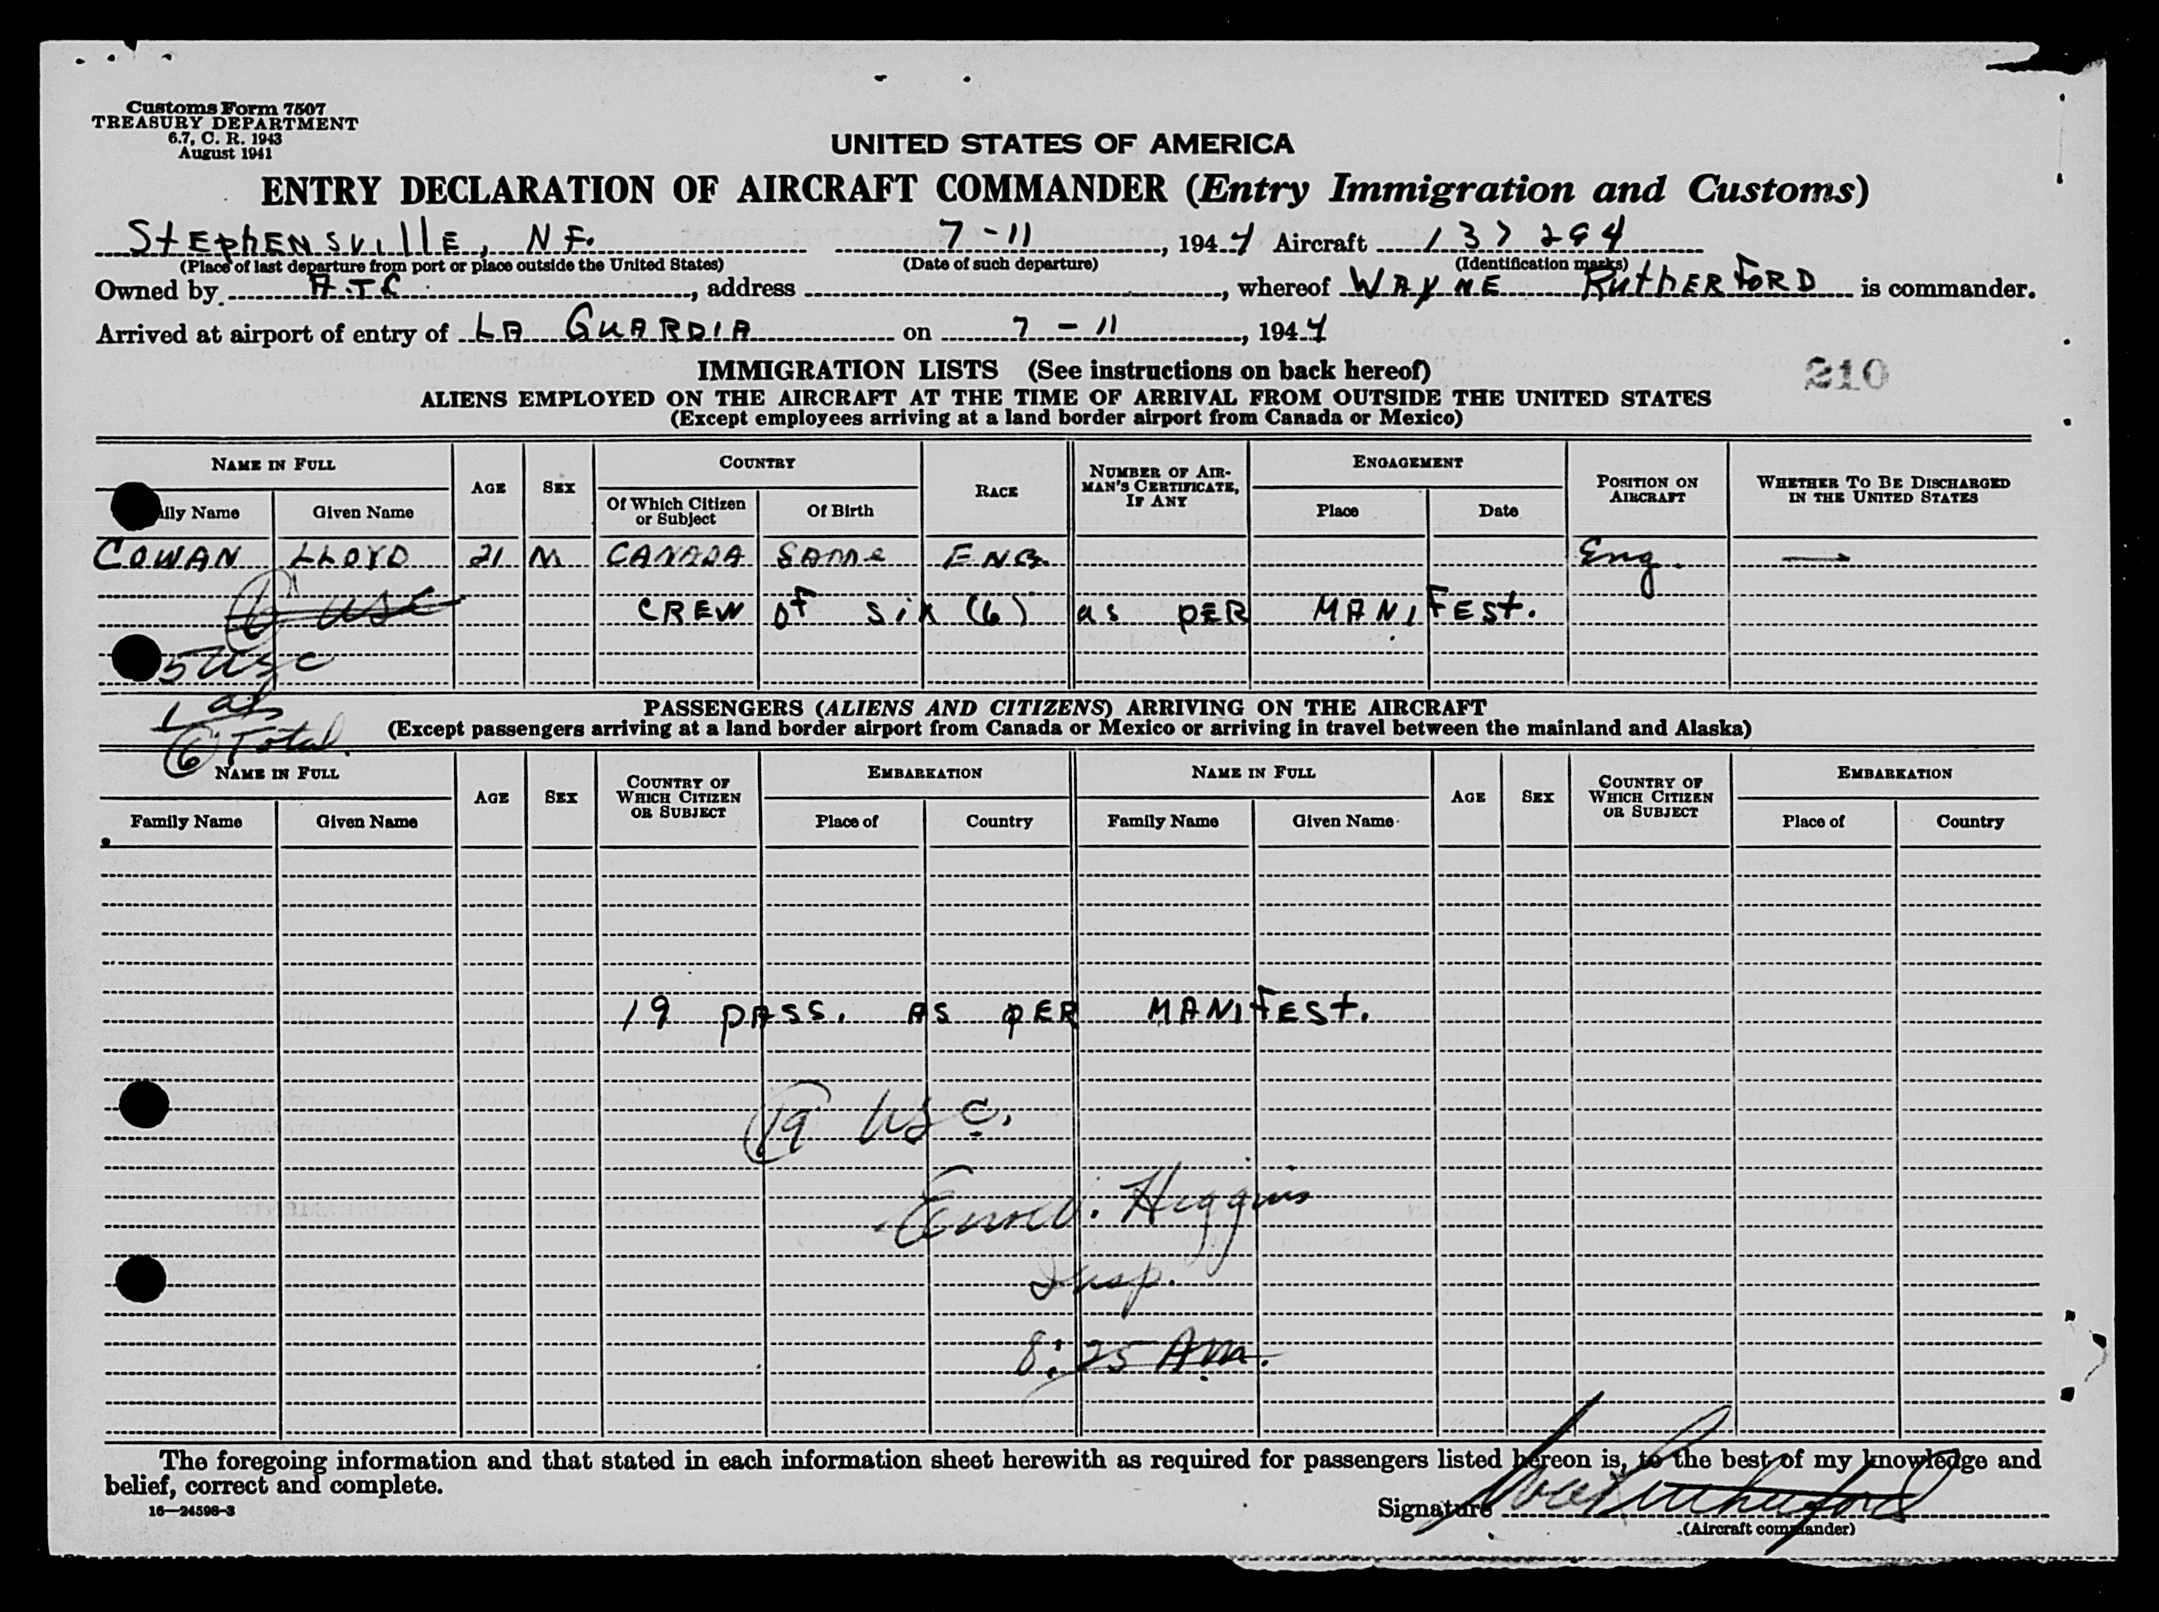 Customs Form 7507
TREASURY DEPARTMENT
6.7, C. R. 1943
August 1941
UNITED STATES OF AMERICA
ENTRY DECLARATION OF AIRCRAFT COMMANDER (Entry Immigration and Customs)
StEphENSVillE, NF. 7-11, 1944 Aircraft 137294
(Place of last departure from port or place outside the United States) (Date of such departure) (Identification marks)
Owned by ATC, address, whereof WAYNE RuthERFORD is commander.
Arrived at airport of entry of LA GUARDIA on 7-11, 1944
IMMIGRATION LISTS (See instructions on back hereof)
210
ALIENS EMPLOYED ON THE AIRCRAFT AT THE TIME OF ARRIVAL FROM OUTSIDE THE UNITED STATES
(Except employees arriving at a land border airport from Canada or Mexico)
NAME IN FULL AGE SEX COUNTRY RACE NUMBER OF AIRMAN'S CERTIFICATE, IF ANY ENGAGEMENT POSITION ON AIRCRAFT WHETHER TO BE DISCHARGED IN THE UNITED STATES
ily Name Given Name Of Which Citizen or Subject Of Birth Place Date
COWAN LLOYD 21 M CANADA SAME ENG. Eng. —
6 USC CREW OF Six (6) as PER MANIFEST.
5 USC
1 al
6 Total.
PASSENGERS (ALIENS AND CITIZENS) ARRIVING ON THE AIRCRAFT
(Except passengers arriving at a land border airport from Canada or Mexico or arriving in travel between the mainland and Alaska)
NAME IN FULL AGE SEX COUNTRY OF WHICH CITIZEN OR SUBJECT EMBARKATION NAME IN FULL AGE SEX COUNTRY OF WHICH CITIZEN OR SUBJECT EMBARKATION
Family Name Given Name Place of Country Family Name Given Name Place of Country
19 PASS. AS PER MANIFEST.
19 USC.
Higgins
Insp.
8:25 AM.
The foregoing information and that stated in each information sheet herewith as required for passengers listed hereon is, to the best of my knowledge and
belief, correct and complete.
16—24598-3
Signature Rutherford
(Aircraft commander)